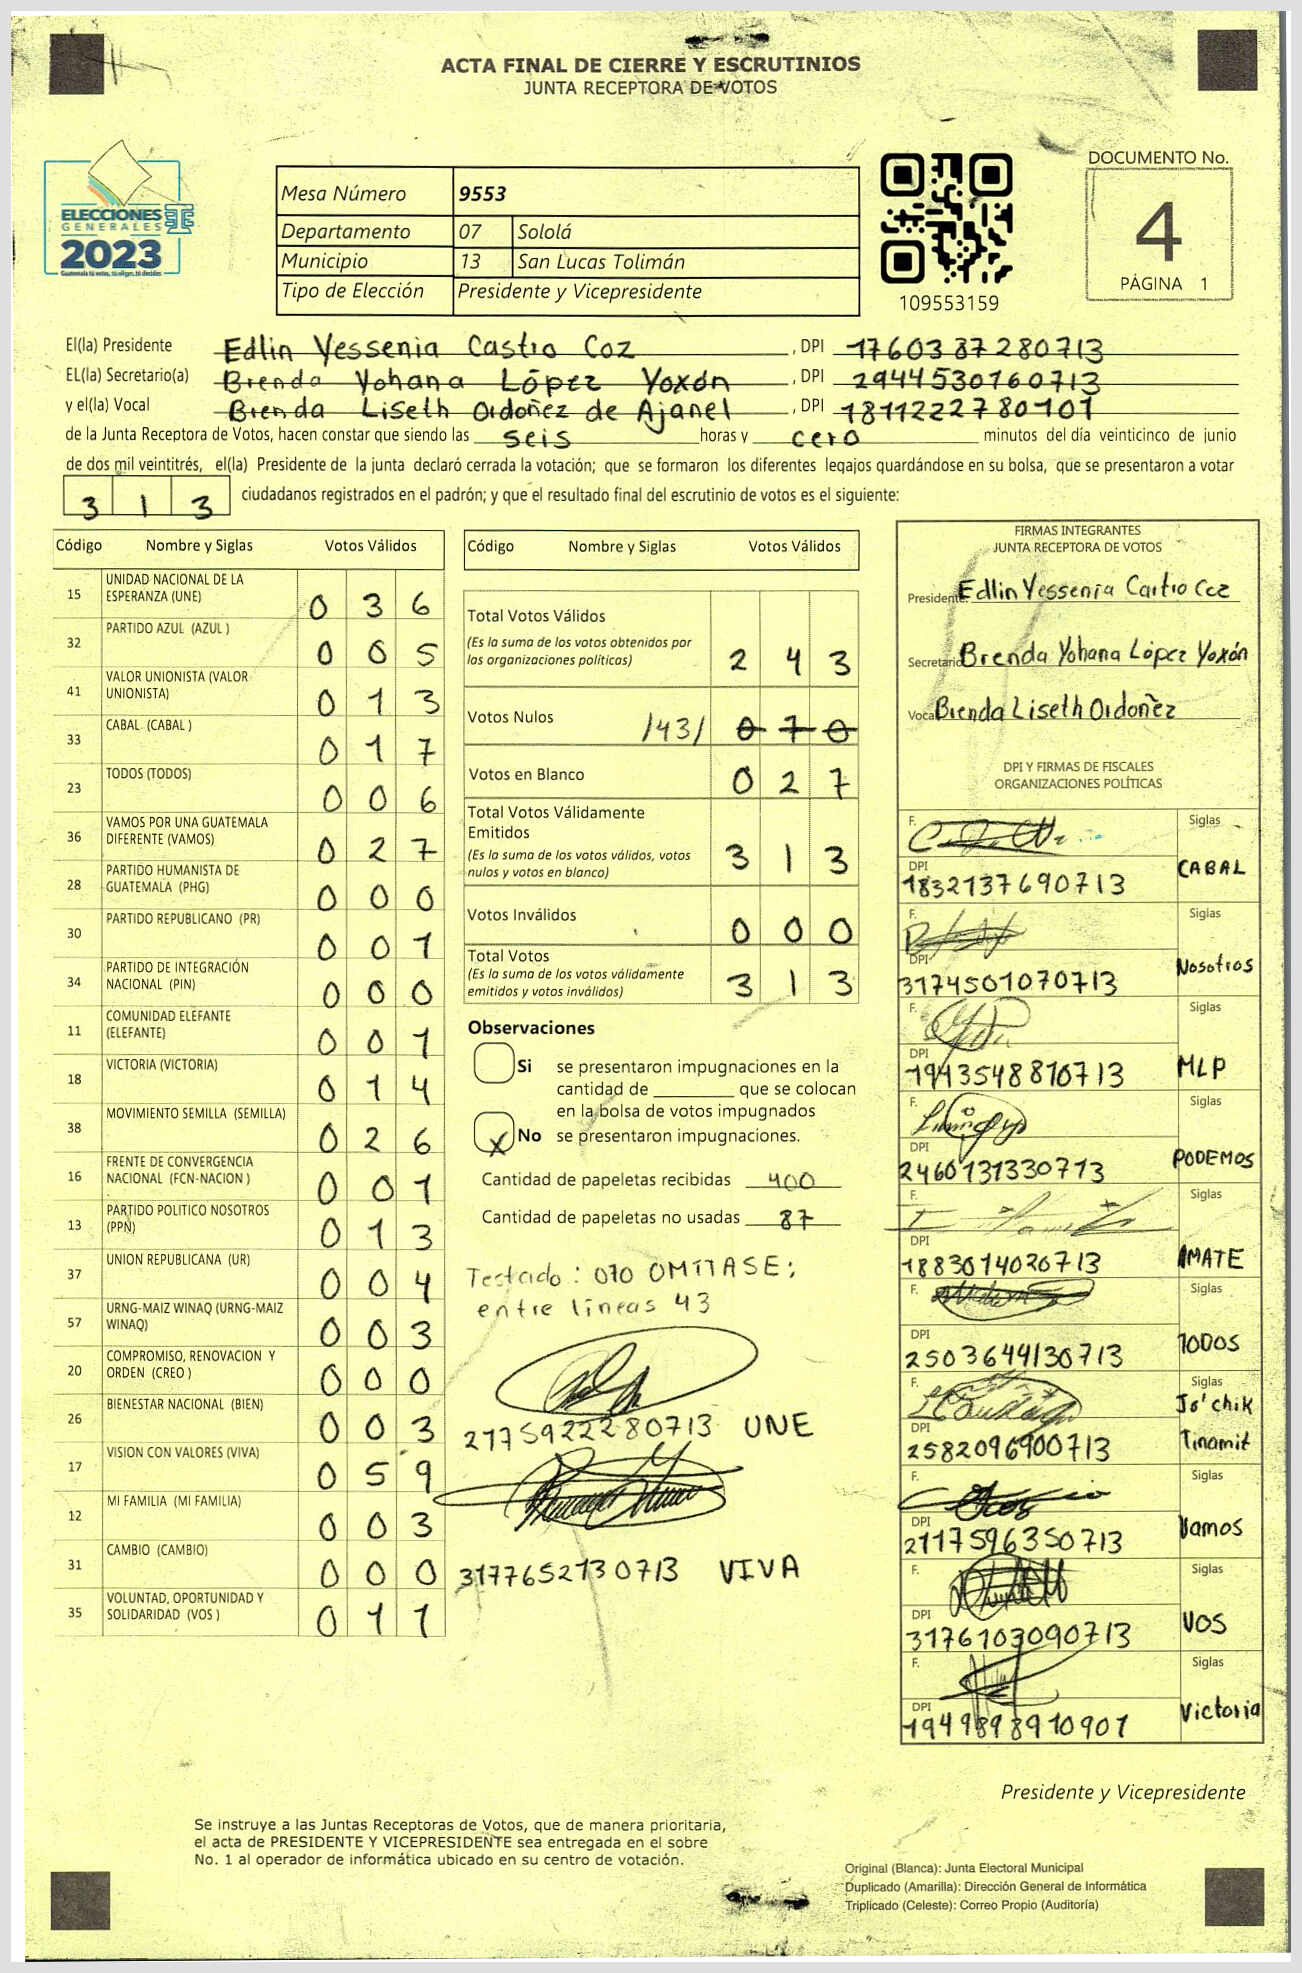 ACTA FINAL DE CIERRE Y ESCRUTINIOS
JUNTA RECEPTORA DE VOTOS
ELECCIONES
GENERALES
2023
Guatemala tú votas, tú eliges, tú decides
Mesa Número 9553
Departamento 07 Sololá
Municipio 13 San Lucas Tolimán
Tipo de Elección Presidente y Vicepresidente
109553159
DOCUMENTO No.
4
PÁGINA 1
El(la) Presidente Edlin Yessenia Castro Coz , DPI 1760387280713
EL(la) Secretario(a) Brenda Yohana López Yoxón , DPI 2944530160713
y el(la) Vocal Brenda Liseth Ordoñez de Ajanel , DPI 1811222780101
de la Junta Receptora de Votos, hacen constar que siendo las seis horas y cero minutos del día veinticinco de junio
de dos mil veintitrés, el(la) Presidente de la junta declaró cerrada la votación; que se formaron los diferentes legajos guardándose en su bolsa, que se presentaron a votar
3 1 3 ciudadanos registrados en el padrón; y que el resultado final del escrutinio de votos es el siguiente:
Código Nombre y Siglas Votos Válidos
15 UNIDAD NACIONAL DE LA ESPERANZA (UNE) 0 3 6
32 PARTIDO AZUL (AZUL ) 0 0 5
41 VALOR UNIONISTA (VALOR UNIONISTA) 0 1 3
33 CABAL (CABAL ) 0 1 7
23 TODOS (TODOS) 0 0 6
36 VAMOS POR UNA GUATEMALA DIFERENTE (VAMOS) 0 2 7
28 PARTIDO HUMANISTA DE GUATEMALA (PHG) 0 0 0
30 PARTIDO REPUBLICANO (PR) 0 0 1
34 PARTIDO DE INTEGRACIÓN NACIONAL (PIN) 0 0 0
11 COMUNIDAD ELEFANTE (ELEFANTE) 0 0 1
18 VICTORIA (VICTORIA) 0 1 4
38 MOVIMIENTO SEMILLA (SEMILLA) 0 2 6
16 FRENTE DE CONVERGENCIA NACIONAL (FCN-NACION ) 0 0 1
13 PARTIDO POLITICO NOSOTROS (PPN) 0 1 3
37 UNION REPUBLICANA (UR) 0 0 4
57 URNG-MAIZ WINAQ (URNG-MAIZ WINAQ) 0 0 3
20 COMPROMISO, RENOVACION Y ORDEN (CREO ) 0 0 0
26 BIENESTAR NACIONAL (BIEN) 0 0 3
17 VISION CON VALORES (VIVA) 0 5 9
12 MI FAMILIA (MI FAMILIA) 0 0 3
31 CAMBIO (CAMBIO) 0 0 0
35 VOLUNTAD, OPORTUNIDAD Y SOLIDARIDAD (VOS ) 0 1 1
Código Nombre y Siglas Votos Válidos
Total Votos Válidos
(Es la suma de los votos obtenidos por
las organizaciones políticas) 2 4 3
Votos Nulos /43/ 0 7 0
Votos en Blanco 0 2 7
Total Votos Válidamente
Emitidos
(Es la suma de los votos válidos, votos
nulos y votos en blanco) 3 1 3
Votos Inválidos 0 0 0
Total Votos
(Es la suma de los votos válidamente
emitidos y votos inválidos) 3 1 3
Observaciones
Si se presentaron impugnaciones en la
cantidad de ________ que se colocan
en la bolsa de votos impugnados
X No se presentaron impugnaciones.
Cantidad de papeletas recibidas 400
Cantidad de papeletas no usadas 87
Testado: 070 OMITASE;
entre líneas 43
2175922280713 UNE
3177652130713 VIVA
FIRMAS INTEGRANTES
JUNTA RECEPTORA DE VOTOS
Presidente: Edlin Yessenia Castro Coz
Secretario Brenda Yohana López Yoxón
Vocal Brenda Liseth Ordoñez
DPI Y FIRMAS DE FISCALES
ORGANIZACIONES POLÍTICAS
F. Siglas
DPI 1832137690713 CABAL
F. Siglas
DPI 3174501070713 Nosotros
F. Siglas
DPI 1943548810713 MLP
F. Siglas
DPI 2460131330713 PODEMOS
F. Siglas
DPI 1883014020713 AMATE
F. Siglas
DPI 2503644130713 TODOS
F. Siglas
DPI 2582096900713 Jo'chik Tinamit
F. Siglas
DPI 2117596350713 Vamos
F. Siglas
DPI 3176103090713 VOS
F. Siglas
DPI 1949898910901 Victoria
Presidente y Vicepresidente
Se instruye a las Juntas Receptoras de Votos, que de manera prioritaria,
el acta de PRESIDENTE Y VICEPRESIDENTE sea entregada en el sobre
No. 1 al operador de informática ubicado en su centro de votación.
Original (Blanca): Junta Electoral Municipal
Duplicado (Amarilla): Dirección General de Informática
Triplicado (Celeste): Correo Propio (Auditoría)